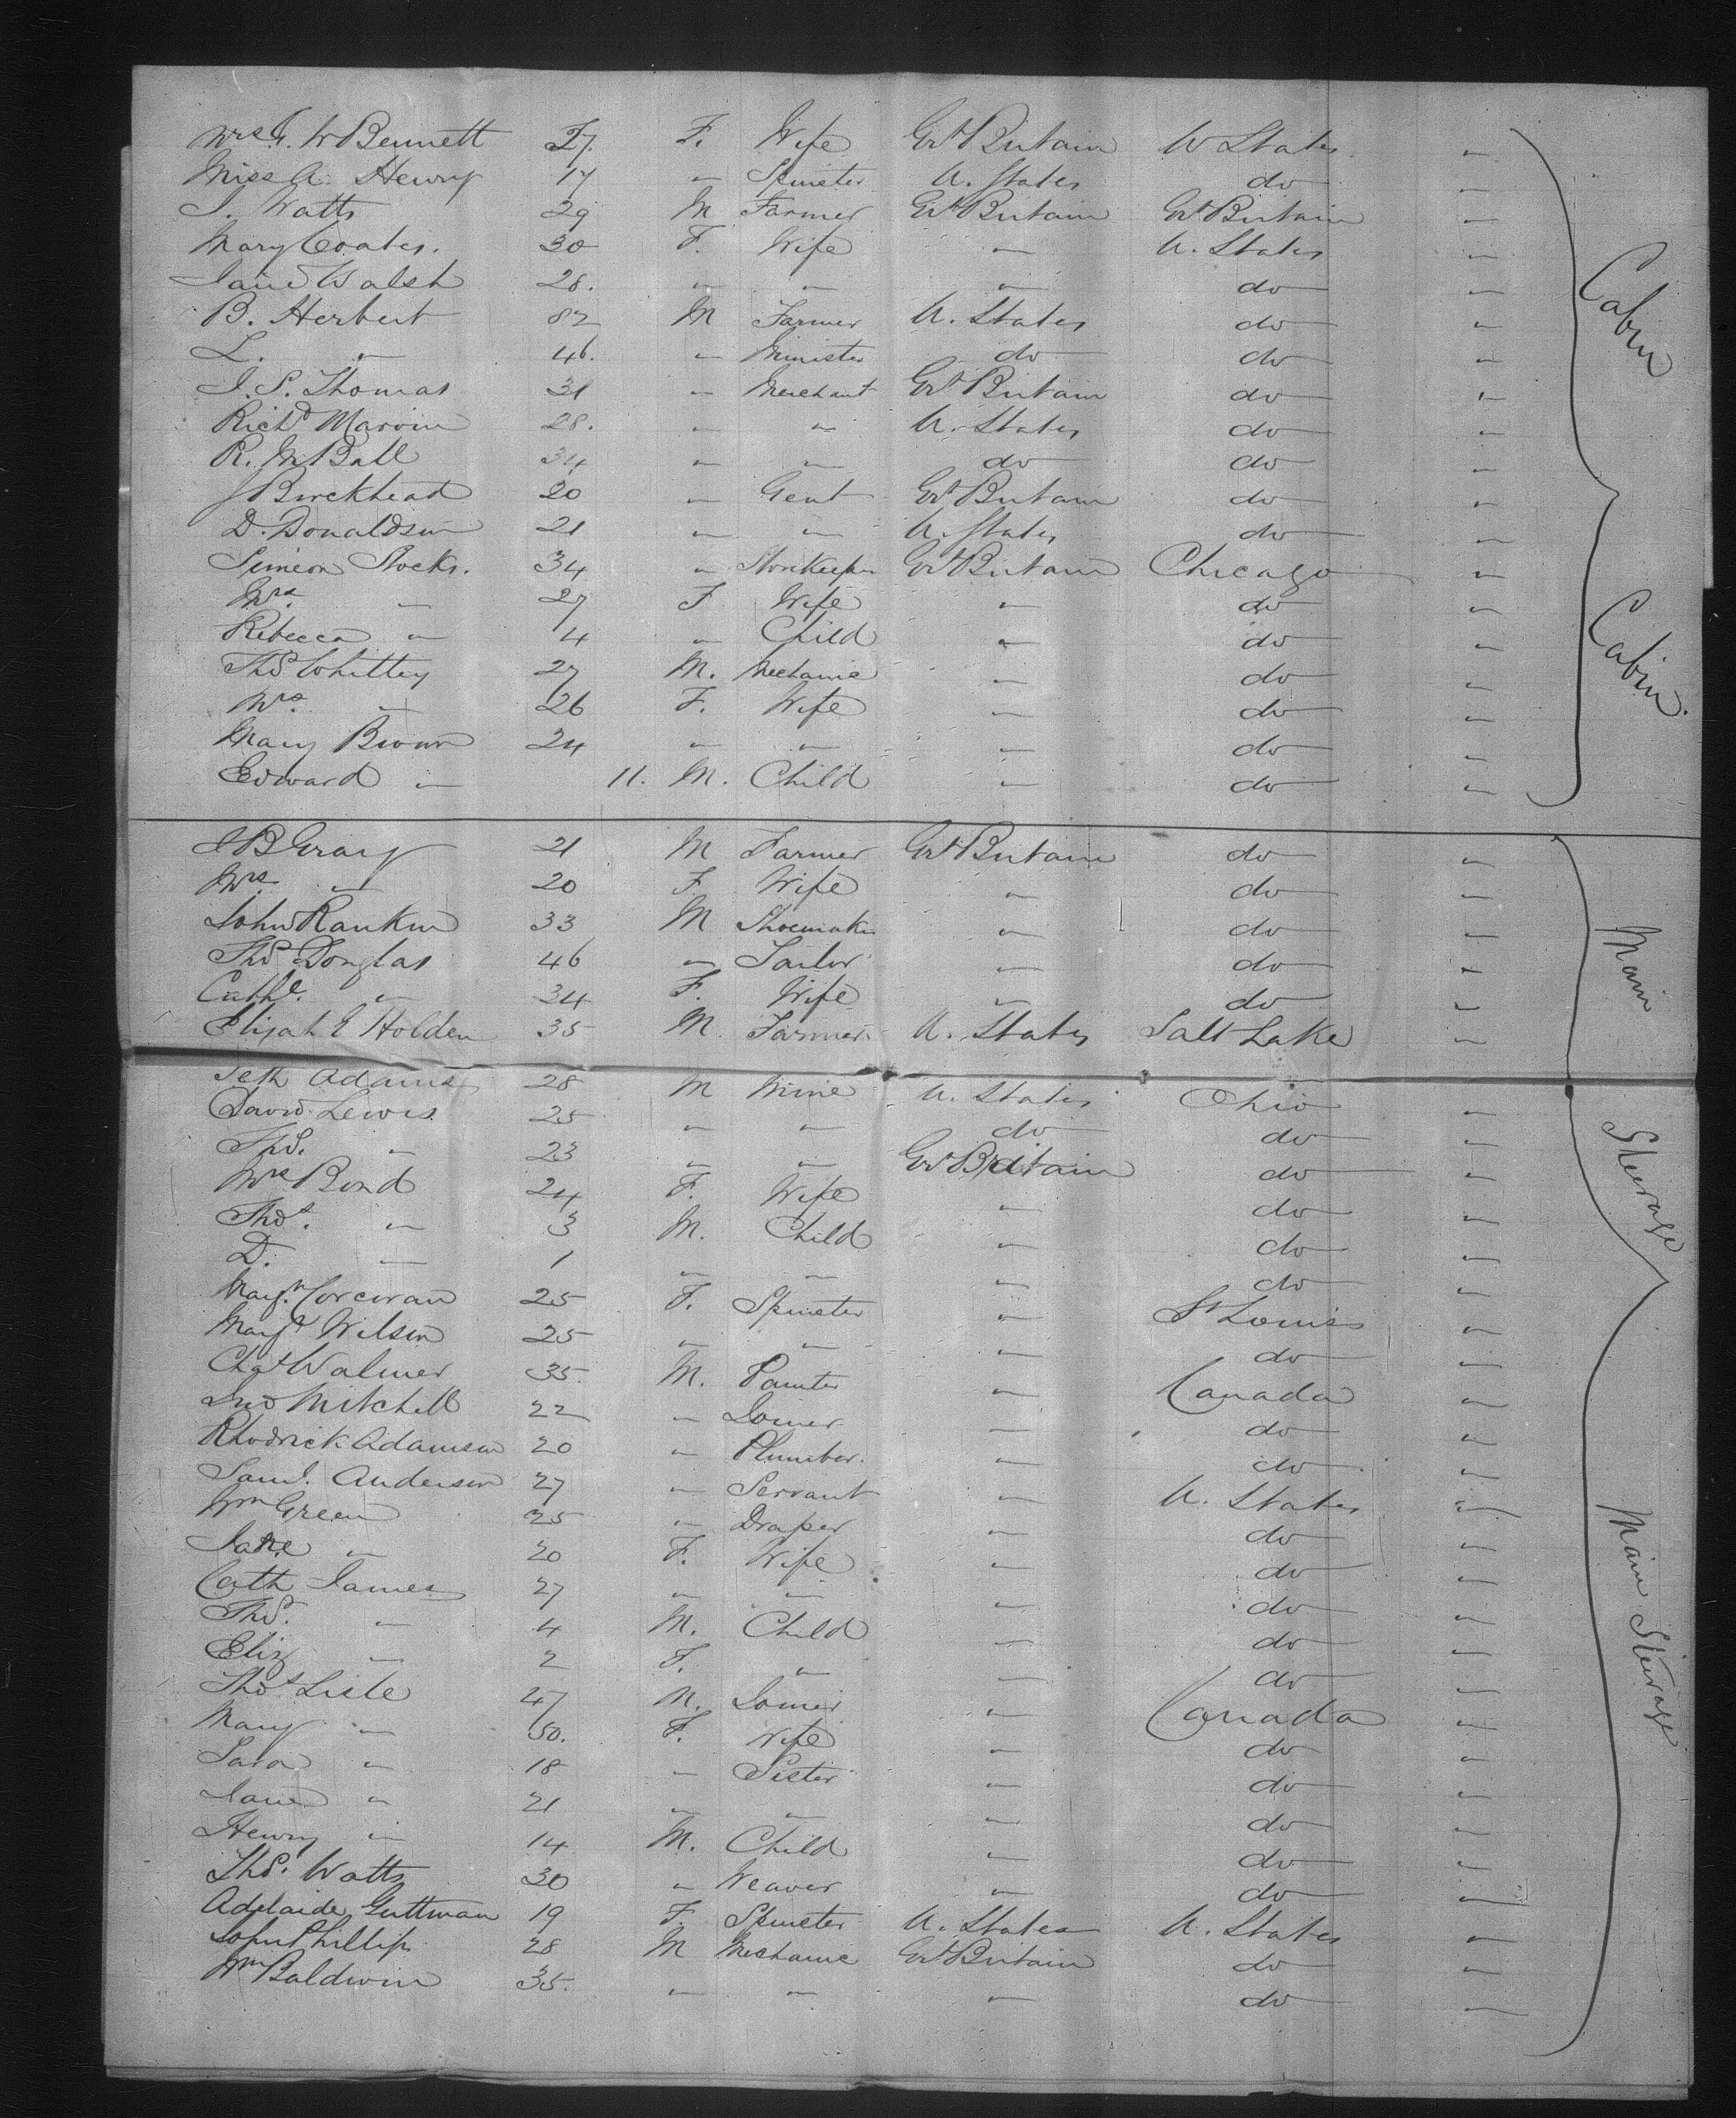 Mrs G. W Bennett 27. F. Wife Grt Britain U States "
Miss A. Henry 17 " Spinster U. States do "
J. Watts 29 M Farmer Grt Britain Grt Britain "
Mary Coates. 30 F. Wife " U. States "
Jane Walsh 28. " " " do "
B. Herbert 82 M Farmer U. States do "
L. " 46. " Minister do do "
J. S. Thomas 31 " Merchant Grt Britain do "
Richd Marvin 28. " " U. States do "
R. M Ball 34 " " do do "
J Birckhead 20 " Gent Grt Britain do "
D. Donaldson 21 " " U. States do "
Simeon Stocks. 34 " Storekeeper Grt Britain Chicago "
Mrs " 27 F Wife " do "
Rebecca " 4 " Child " do "
Thos Whittey 27 M. Mechanic " do "
Mrs. " 26 F. Wife " do "
Mary Brown 24 " " " do "
Edward " 11. M. Child " do "
Cabin
Cabin.
J B Gray 21 M Farmer Grt Britain do "
Mrs " 20 F Wife " do "
John Rankin 33 M Shoemaker " do "
Thos Douglas 46 " Tailor " do "
Cathe. " 34 F. Wife " do "
Elijah E Holden 35 M. Farmer U. States Salt Lake "
Seth Adams 28 M Mine U. States Ohio "
David Lewis 25 " " do do "
Thos. " 23 " " Grt Britain do "
Mrs Bond 24 F. Wife " do "
Thos. " 3 M. Child " do "
D. " 1 " " " do "
Margt. Corcoran 25 F. Spinster " St Louis "
Margt Wilson 25 " " " do "
Chas Walmer 35. M. Painter " Canada "
Jno Mitchell 22 " Joiner " do "
Rhodrick Adamson 20 " Plumber. " do "
Saml. Anderson 27 " Servant " U. States "
Wm Green 25 " Draper " do "
Jane " 20 F. Wife " do "
Cath James 27 " " " do "
Thos. " 4 M. Child " do "
Eliz " 2 F. " " do "
Thos Lisle 47 M. Joiner " Canada "
Mary " 50. F. Wife " do "
Sara " 18 " Sister " do "
Jane " 21 " " " do "
Henry " 14 M. Child " do "
Thos. Watts 30 " Weaver " do "
Adelaide Guttman 19 F. Spinster U. States U. States "
John Phillips 28 M Mechanic Grt Britain do "
Wm Baldwin 35. " " " do "
Main
Steerage
Main Steerage